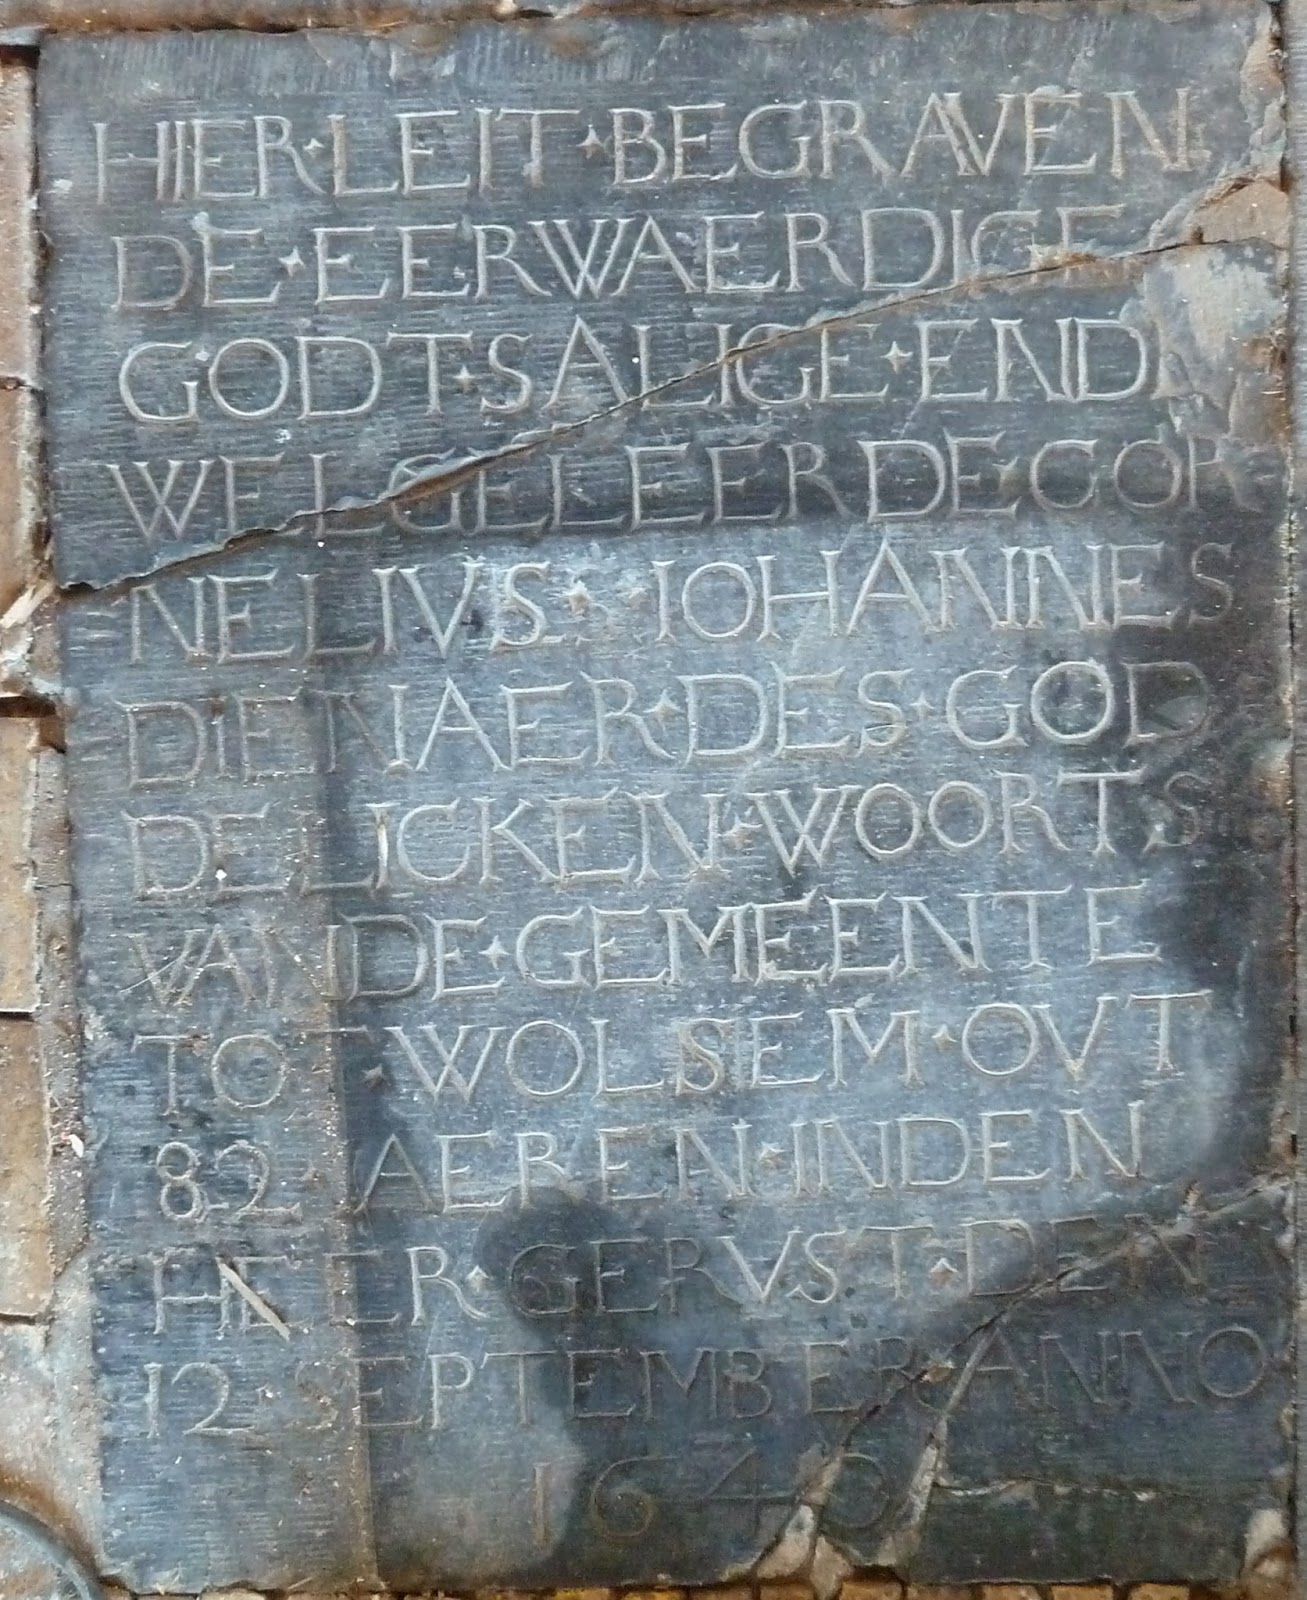 HIER·LEIT·BEGRAVEN
DE·EERWAERDIGE
GODT·SALIGE·ENDE
WELGELEERDE·COR
NELIVS··IOHANNES
DIENAER·DES·GOD
DELICKEN·WOORTS
VANDE·GEMEENTE
TOT·WOLSEM·OVT
82·IAEREN·INDEN
HEER·GERVST·DEN
12·SEPTEMBER·ANNO
1640